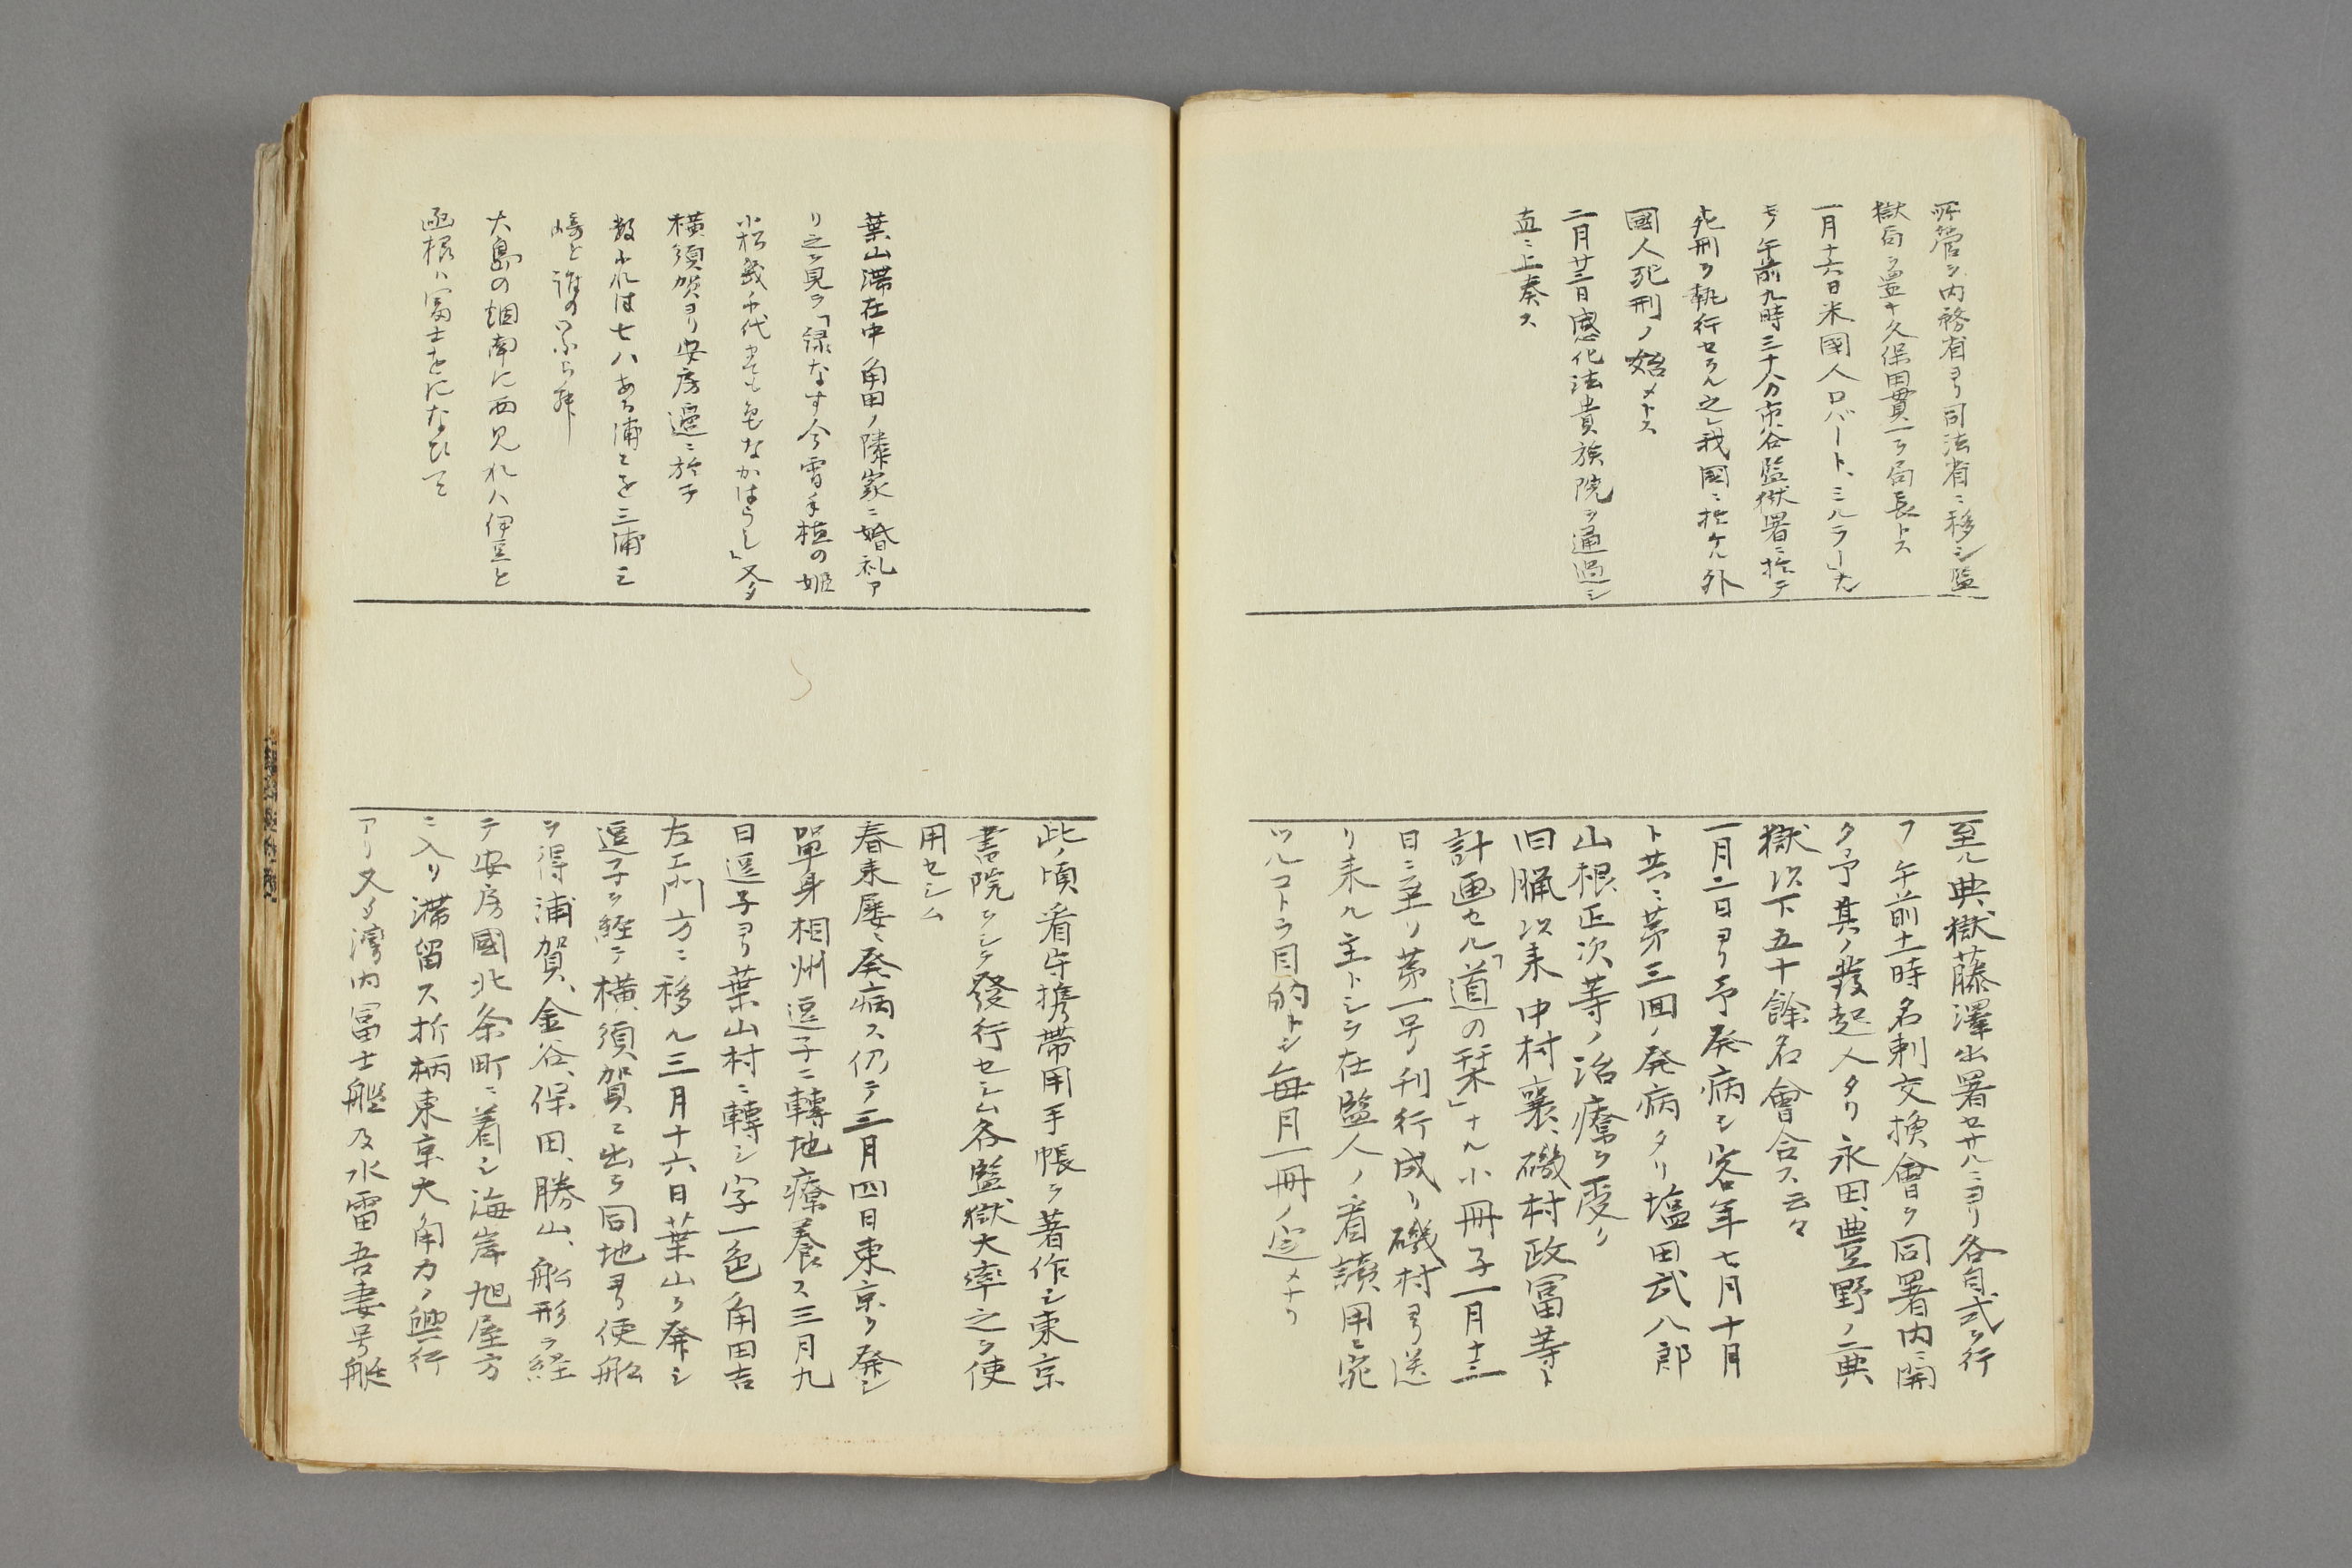 所管ヲ内務省ヨリ司法省ニ移シ監
獄局ヲ置キ久保田貫一ヲ局長トス
一月十六日米國人ロバート、ミルラーナル
モノ午前九時三十分市谷監獄署ニ於テ
死刑ヲ執行セラル之レ我國ニ於ケル外
國人死刑ノ始メトス
二月廿三日感化法貴族院ヲ通過シ
直ニ上奏ス
至ル典獄藤澤出署セサルニヨリ各自式ヲ行
フ午前十一時名刺交換會ヲ同署内ニ開
ク予其ノ發起人タリ永田、豊野ノ二典
獄以下五十餘名會合ス云々
一月二日ヨリ予発病シ客年七月十月
ト共ニ第三回ノ発病タリ塩田武八郎
山根正次等ノ治療ヲ受ク
旧臘以来中村襄、磯村政冨等ト
計画セル「道の栞」ナル小冊子一月十三
日ニ至リ第一号刊行成リ磯村ヨリ送
リ来ル主トシテ在監人ノ看讀用ニ宛
ツルコトヲ目的トシ毎月一冊ノ定メナリ
葉山滞在中角田ノ隣家ニ婚礼ア
リ之ヲ見テ「緑なす今宵手植の姫
小松幾千代かても色なかはらし」又タ
横須賀ヨリ安房遥ニ於テ
数ふれは七八ある浦々を三浦三
崎と誰の
大島の烟南に西見れハ伊豆と
函根ハ冨士をになひて
此ノ頃看守携帯用手帳ヲ著作シ東京
書院ヲシテ發行セシム各監獄大率之ヲ使
用セシム
春来屡々発病ス仍テ三月四日東京ヲ発シ
單身相州逗子ニ轉地療養ス三月九
日逗子ヨリ葉山村ニ轉シ字一色角田吉
左エ門方ニ移ル三月十六日葉山ヲ発シ
逗子ヲ経テ横須賀ニ出テ同地ヨリ便船
ヲ得浦賀、金谷、保田、勝山、船形ヲ経
テ安房國北条町ニ着シ海岸旭屋方
ニ入リ滞留ス折柄東京大角力ノ興行
アリ又タ湾内冨士艦及水雷吾妻号艇